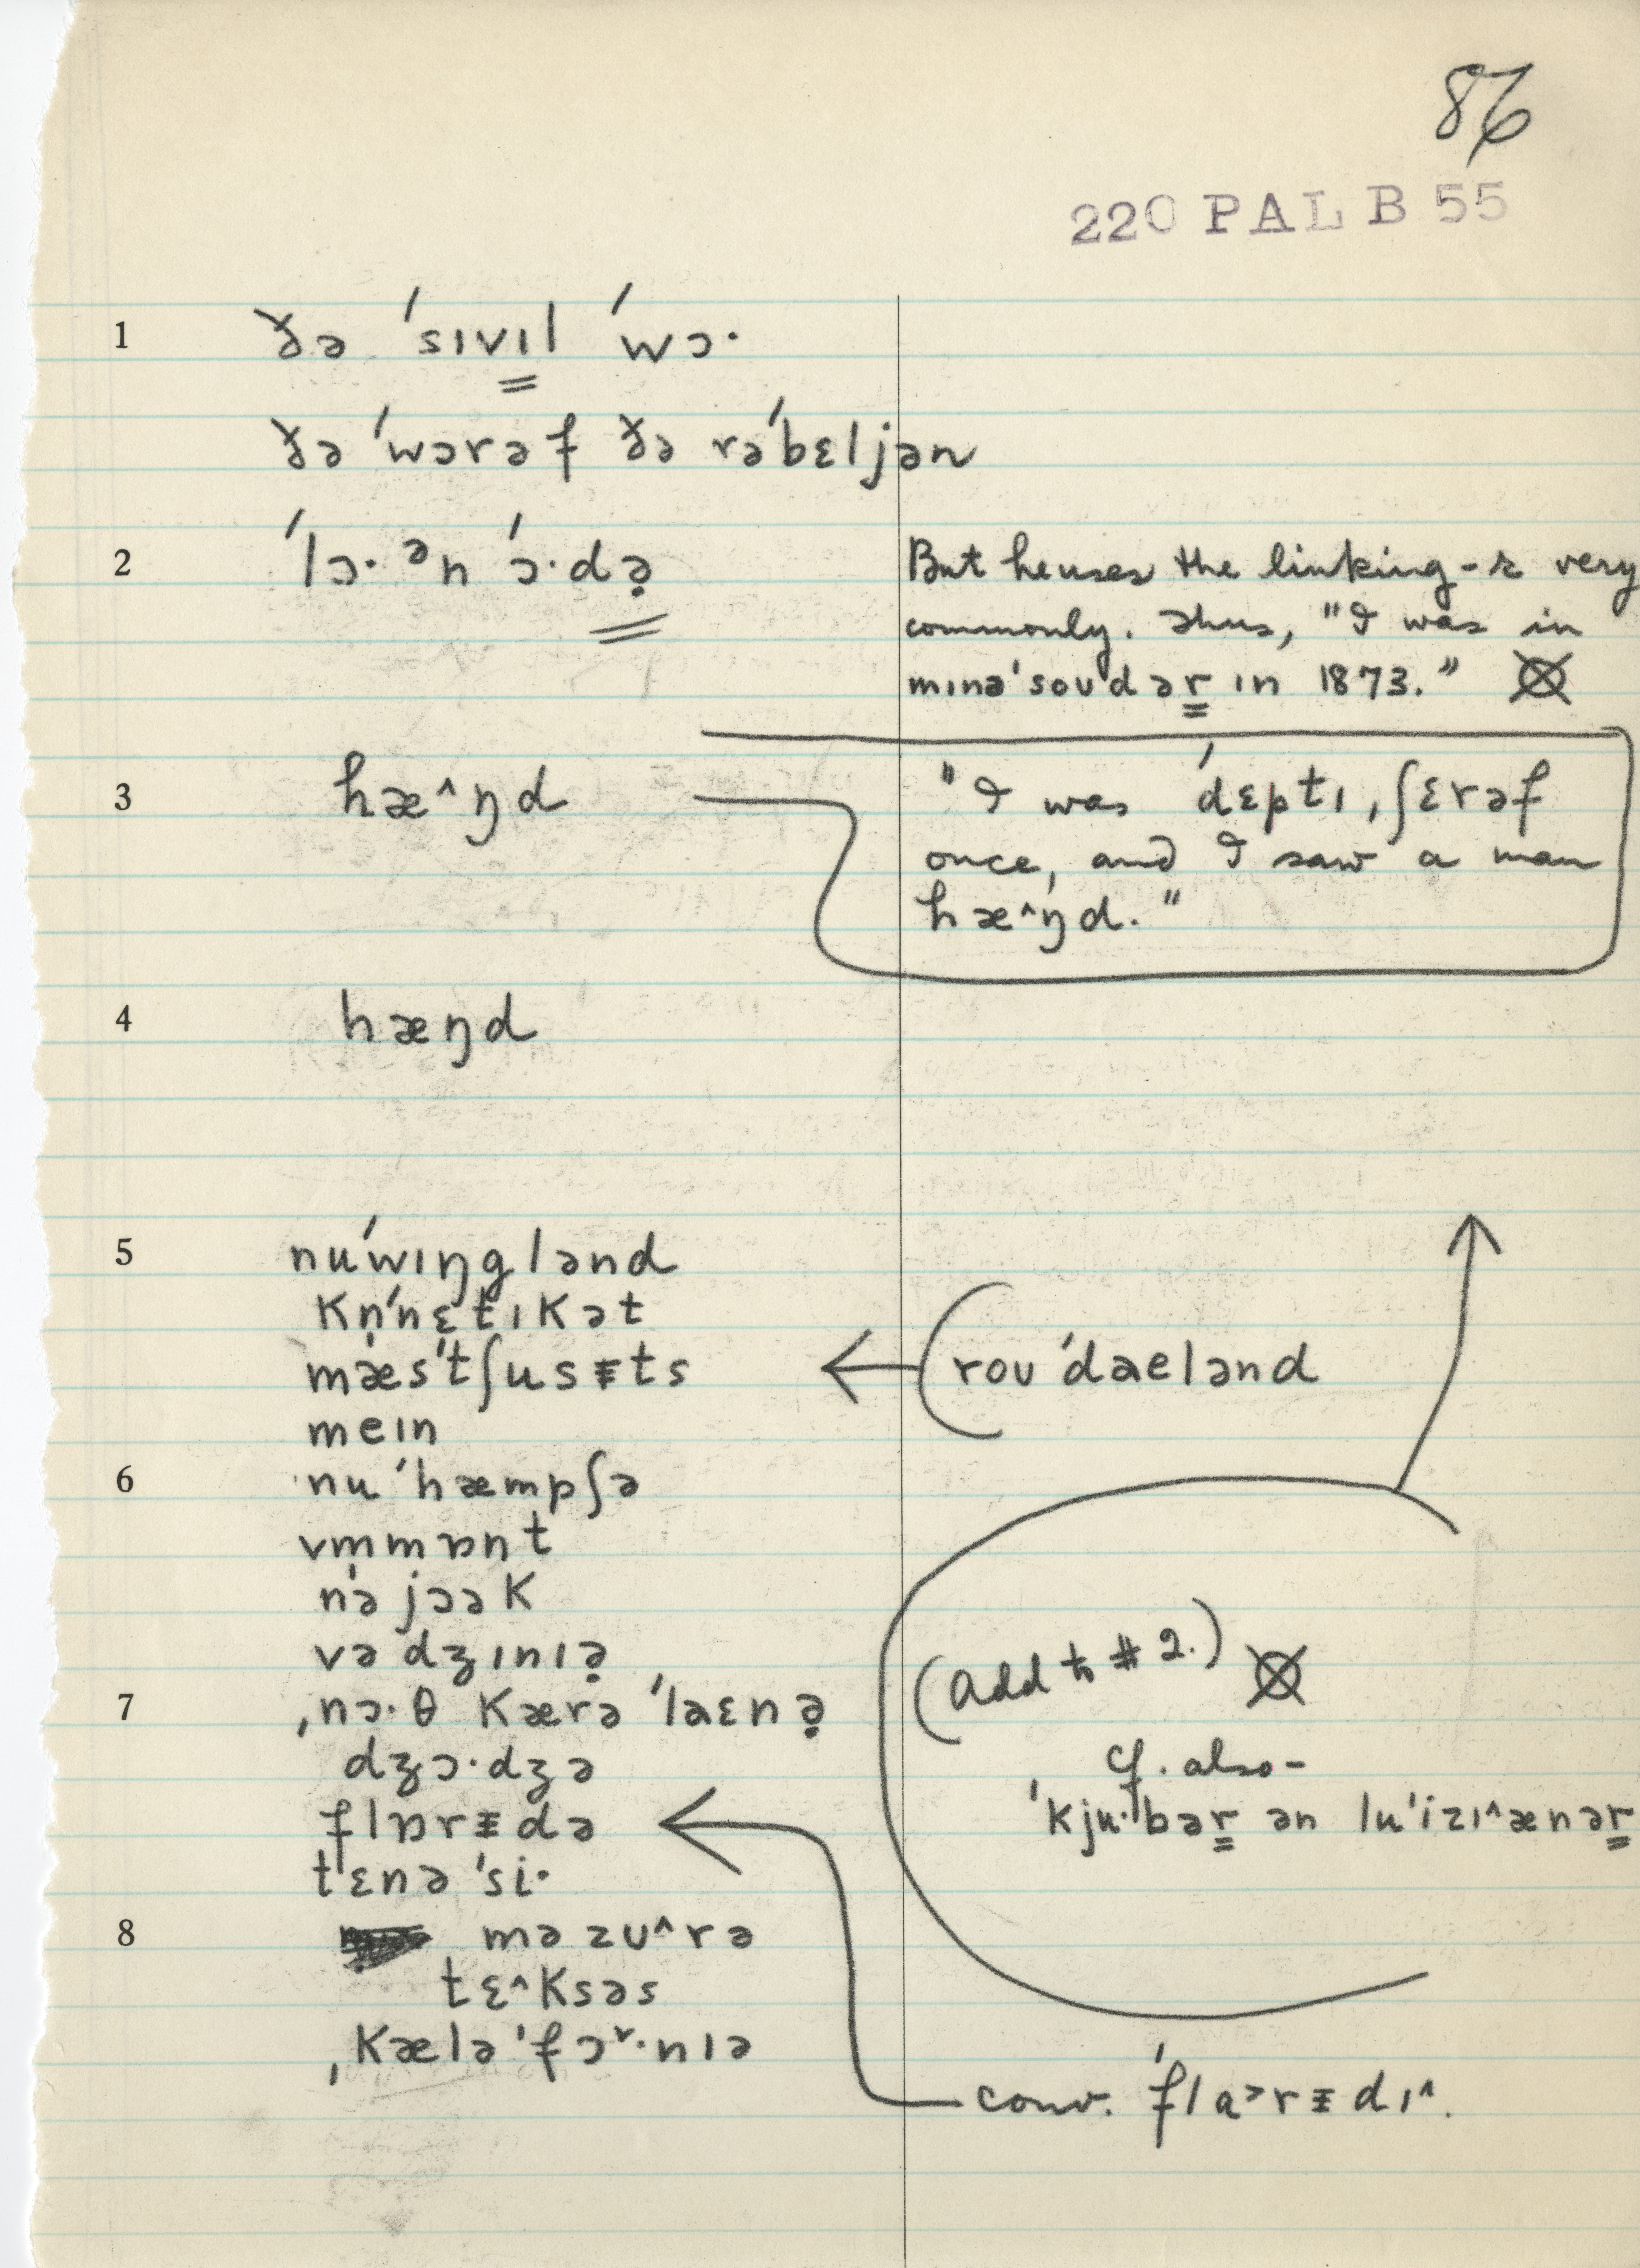 86
220 PAL B 55
1 ðə ˈsɪvɪl ˈwɔ·
ðə ˈwɔrəf ðə rəˈbɛljən
2 ˈlɔ· ᵊn ˈɔ·də̣
But he uses the linking-r very
commonly. Thus, "I was in
mɪnəˈsoʊdər ɪn 1873." ⊗
3 hæ^ŋd
"I was ˈdɛptɪ ˌʃɛrəf
once, and I saw a man
hæ^ŋd."
4 hæŋd
5 nuˈwɪŋglənd
kn̩ˈnɛtɪkət
mæsˈtʃusᵻts
rouˈdaelənd
meɪn
6 nuˈhæmpʃə
vm̩mɒnt
nə jɔək
və dʒɪnɪə̣
7 ˌnɔ·θ kærəˈlaɛnə̣
(add to #2.) ⊗
dʒɔ·dʒə
cf. also-
flɒrᵻdə
ˈkju·bər ən luˈizɪ^ænər
tɛnəˈsi·
8 məzʊ^rə
tɛ^ksəs
ˌkæləˈfɔ˅·nɪə
conv. ˈfla>rᵻdɪ^.